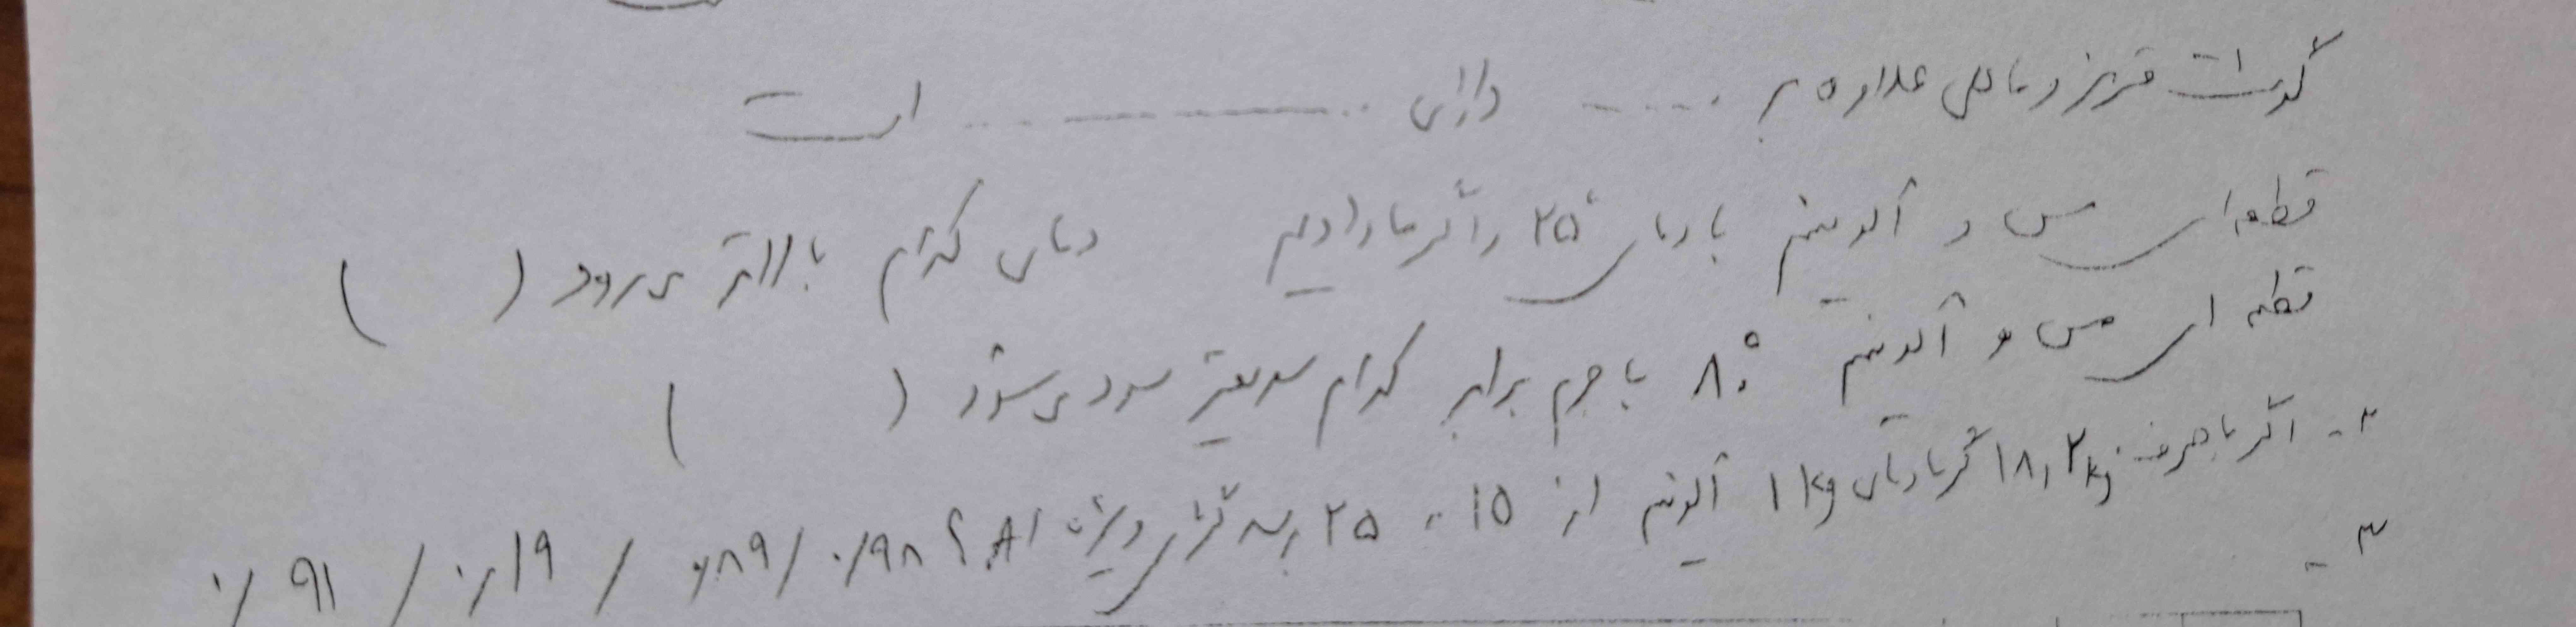 گوشت قرمز و ماهی علاوه بر ..... دارای ............ است
قطعه ای مس و آلومینیم با دمای ۲۵° را گرما دادیم دمای کدام بالاتر می رود ( )
قطعه ای مس و آلومینیم ۸۰° با جرم برابر کدام سریعتر سرد می شود ( )
۲- اگر با صرف ۱۸٫۲ kj گرما دمای ۱ kg آلومینیم از ۱۵ به ۲۵ برسد گرمای ویژه Al ؟ ۰/۹۸ / ۰/۸۹ / ۰/۱۹ / ۰/۹۱
۳-